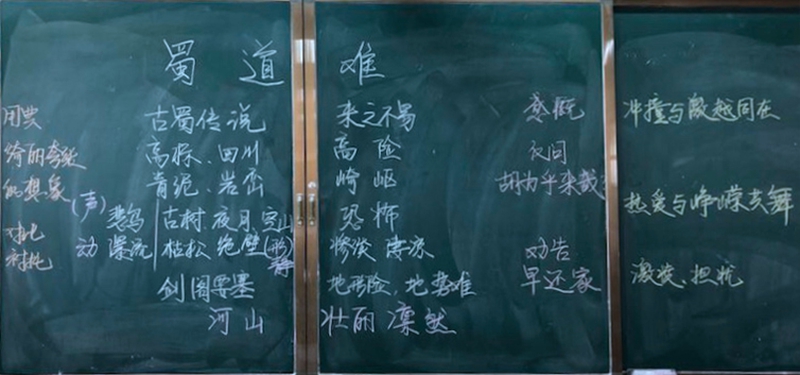 蜀道难
用典 古蜀传说 来之不易 感慨 冲撞与激越同在
绮丽夸张 高标、回川 高险 反问
的想象 青泥、岩峦 崎岖 胡为乎来哉
(声) 悲鸟 古树夜月空山 恐怖 热爱与峥嵘共舞
对比 衬托 动 瀑流 枯松绝壁(形)静 惨淡凄凉 劝告
剑阁要塞 地形险,地势难 早还家 激赏、担忧
河山 壮丽凛然